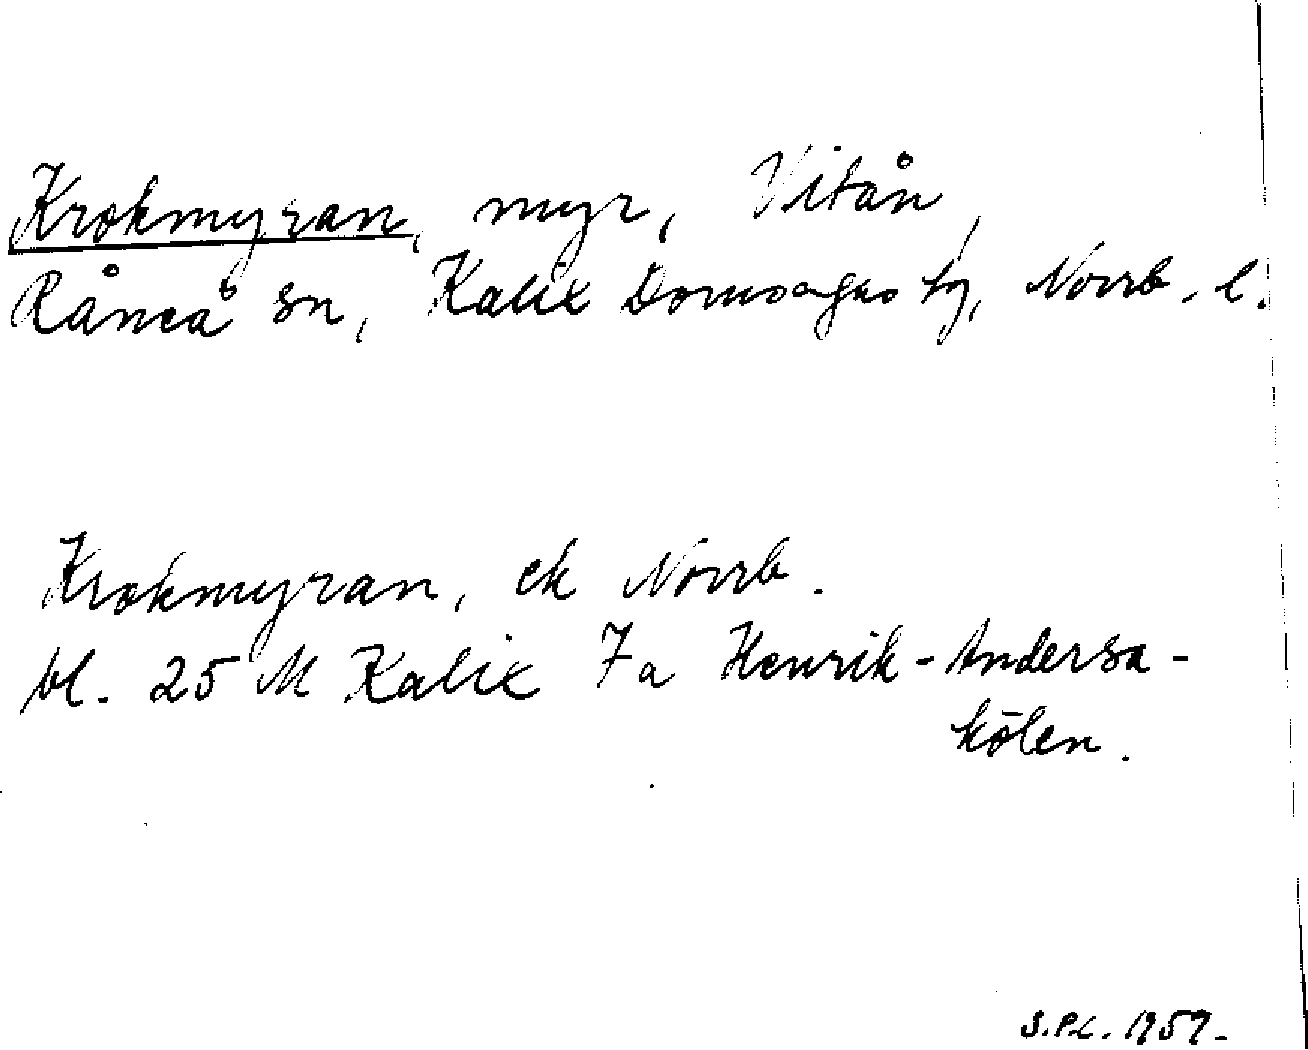 Krokmyran, myr, Vitån,
Råneå sn, Kalix Domsagas tg, Norrb. l.
Krokmyran, ek Norrb.
bl. 25 M Kalix 7a Henrik-Andersa-
kölen.
S.P.L. 1959.